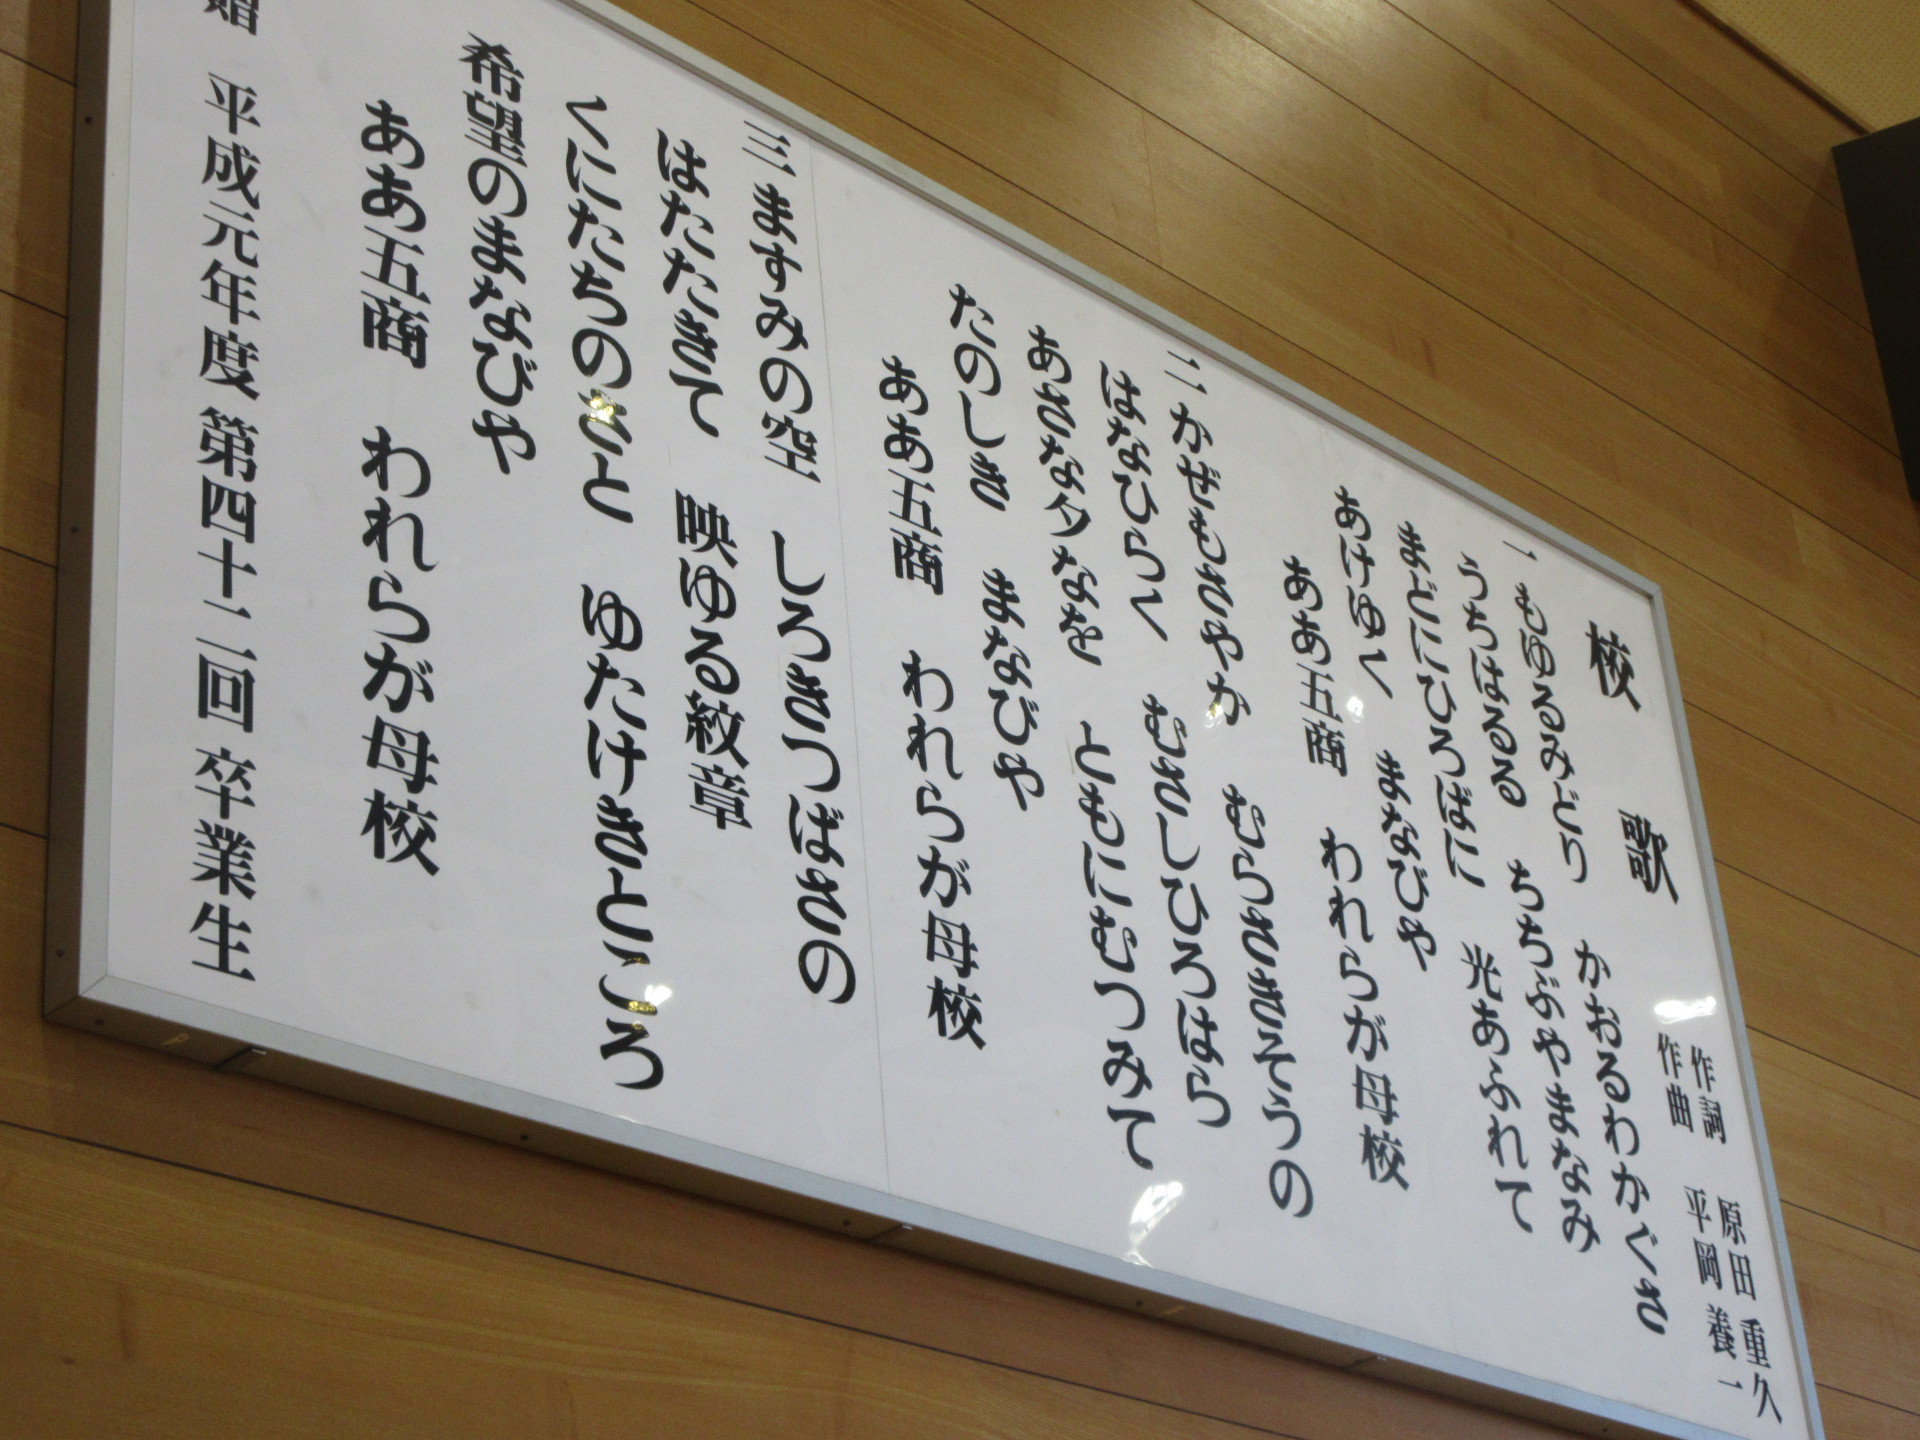 校歌
作詞 原田 重久
作曲 平岡 養一
一 もゆるみどり かおるわかぐさ
うちはるる ちちぶやまなみ
まどにひろばに 光あふれて
あけゆく まなびや
ああ五商 われらが母校
二 かぜもさやか むらさききそうの
はなひらく むさしひろはら
あさな夕なを ともにむつみて
たのしき まなびや
ああ五商 われらが母校
三 ますみの空 しろきつばさの
はたたきて 映ゆる紋章
くにたちのさと ゆたけきところ
希望のまなびや
ああ五商 われらが母校
贈 平成元年度 第四十二回 卒業生